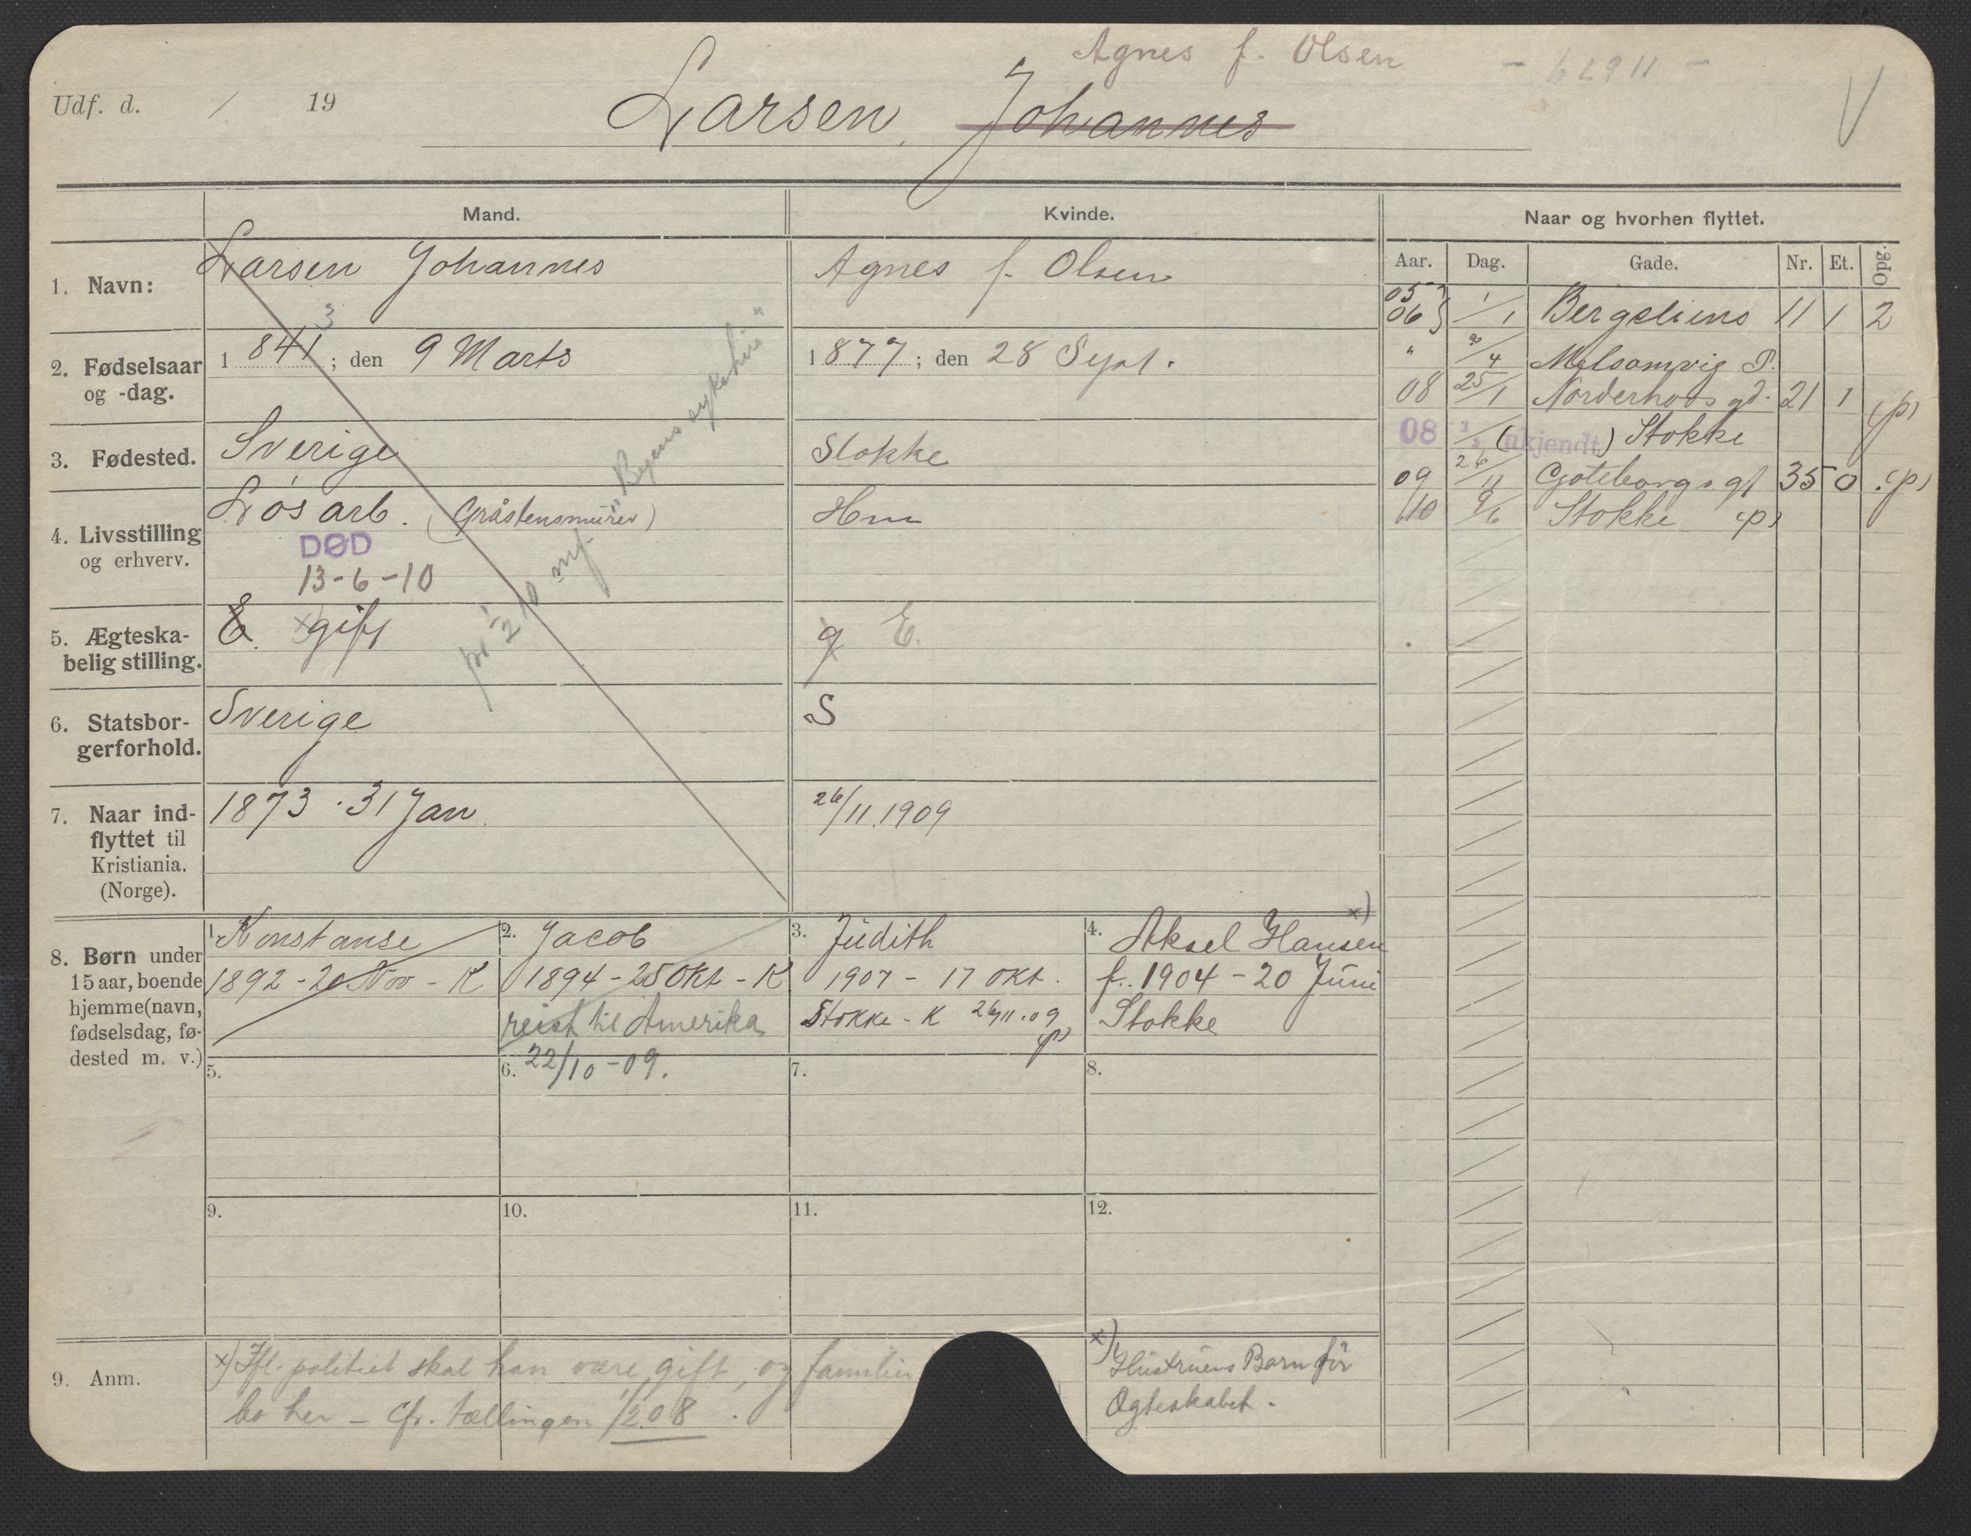 Agnes f. Olsen
Udf. d. / 19
Larsen, Johannes
V
Mand.
Kvinde.
Naar og hvorhen flyttet.
Aar. Dag. Gade. Nr. Et. Opg.
1. Navn:
Larsen Johannes
Agnes f. Olsen
2. Fødselsaar
og -dag.
1841 3; den 9 Marts
1877; den 28 Sept.
3. Fødested.
Sverige
Stokke
4. Livsstilling
og erhverv.
Løsarb. (Gråstensmurer)
DØD
13-6-10
Hm
5. Ægteska-
belig stilling.
E. x gift
g E.
"Byens sykehus"
6. Statsbor-
gerforhold.
Sverige
S
7. Naar ind-
flyttet til
Kristiania.
(Norge).
1873 . 31 Jan.
26/11.1909
05 } 1/1 Bergsliens 11 1 2
06 }
" 9/4 Melsomvig P.
08 25/1 Norderhovs gd. 21 1 (p)
08 (ukjendt) Stokke
09 26/11 Gøteborgs gt 35 0 (p)
10 9/6 Stokke (p)
8. Børn under
15 aar, boende
hjemme (navn,
fødselsdag, fø-
dested m. v.)
1. Konstanse
1892 - 20 Nov - K
2. Jacob
1894 - 25 Okt - K
reist til Amerika
22/10 - 09.
3. Judith
1907 - 17 Okt.
Stokke - K 26/11.09
(p)
4. Aksel Hansen x)
f. 1904 - 20 Juni
Stokke
5.
6.
7.
8.
9.
10.
11.
12.
9. Anm.
x) Ifl. politiet skal han være gift, og familien
bo her - Cfr. tællingen 1/2 08.
x) Hustruens Barn før
Ægteskabet.